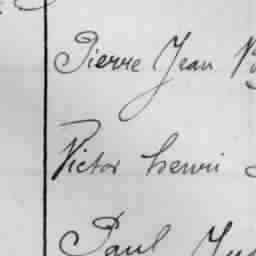 Pierre Jean
Victor henri
Paul